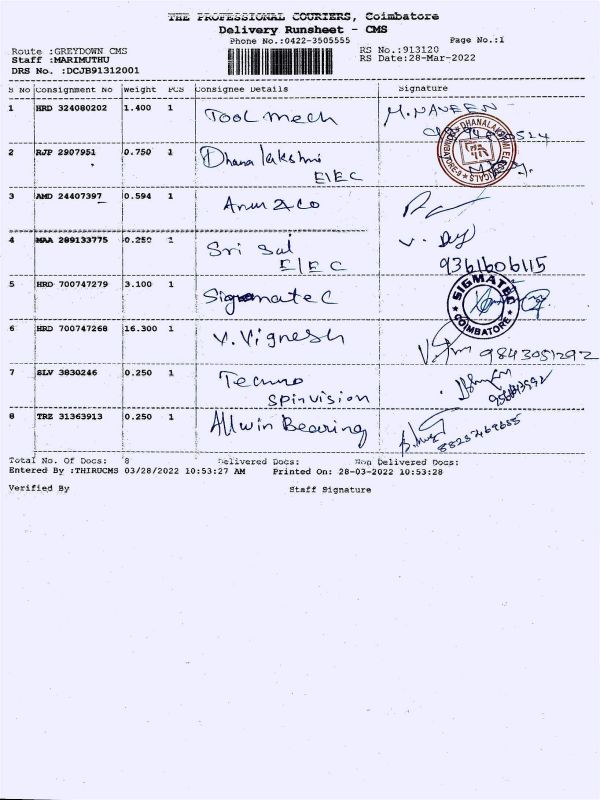 THE PROFESSIONAL COURIERS, Coimbatore
Delivery Runsheet - CMS
Phone No.:0422-3505555 Page No.:1
Route :GREYDOWN CMS RS No.:913120
Staff :MARIMUTHU RS Date:28-Mar-2022
DRS No. :DCJB91312001
S No Consignment No Weight PCS Consignee Details Signature
1 HRD 324080202 1.400 1 Tool mech M. NAVEEN
2 RJP 2907951 0.750 1 Dhana lakshmi
ElEC
3 AMD 24407397 0.594 1 Arun & co
4 MAA 289133775 0.250 1 Sri Sai
ElEC
9361606115
5 HRD 700747279 3.100 1 Sigmatec SIGMATEC
COIMBATORE
6 HRD 700747268 16.300 1 V. Vignesh 9843051292
7 SLV 3830246 0.250 1 Techno
spinvision
8 TRZ 31363913 0.250 1 Allwin Bearing
Total No. Of Docs: 8 Delivered Docs: Non Delivered Docs:
Entered By :THIRUCMS 03/28/2022 10:53:27 AM Printed On: 28-03-2022 10:53:28
Verified By Staff Signature